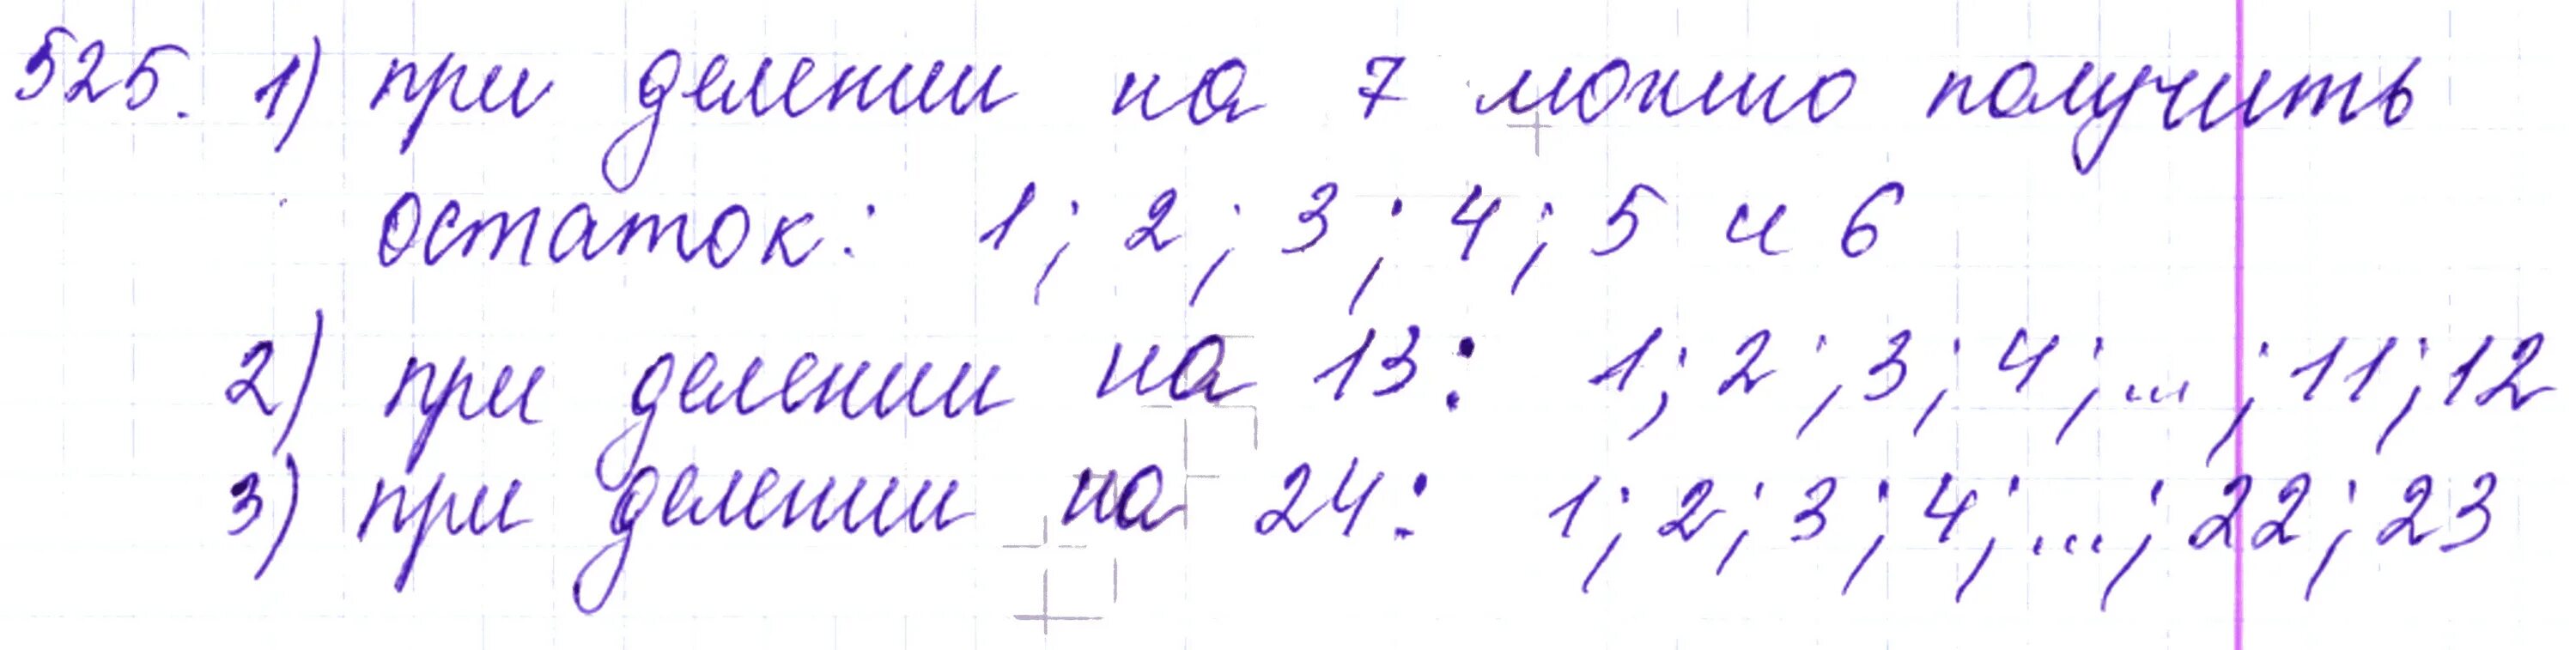 525. 1) при делении на 7 можно получить
остаток: 1; 2; 3; 4; 5 и 6
2) при делении на 13: 1; 2; 3; 4; ... ; 11; 12
3) при делении на 24: 1; 2; 3; 4; ...; 22; 23